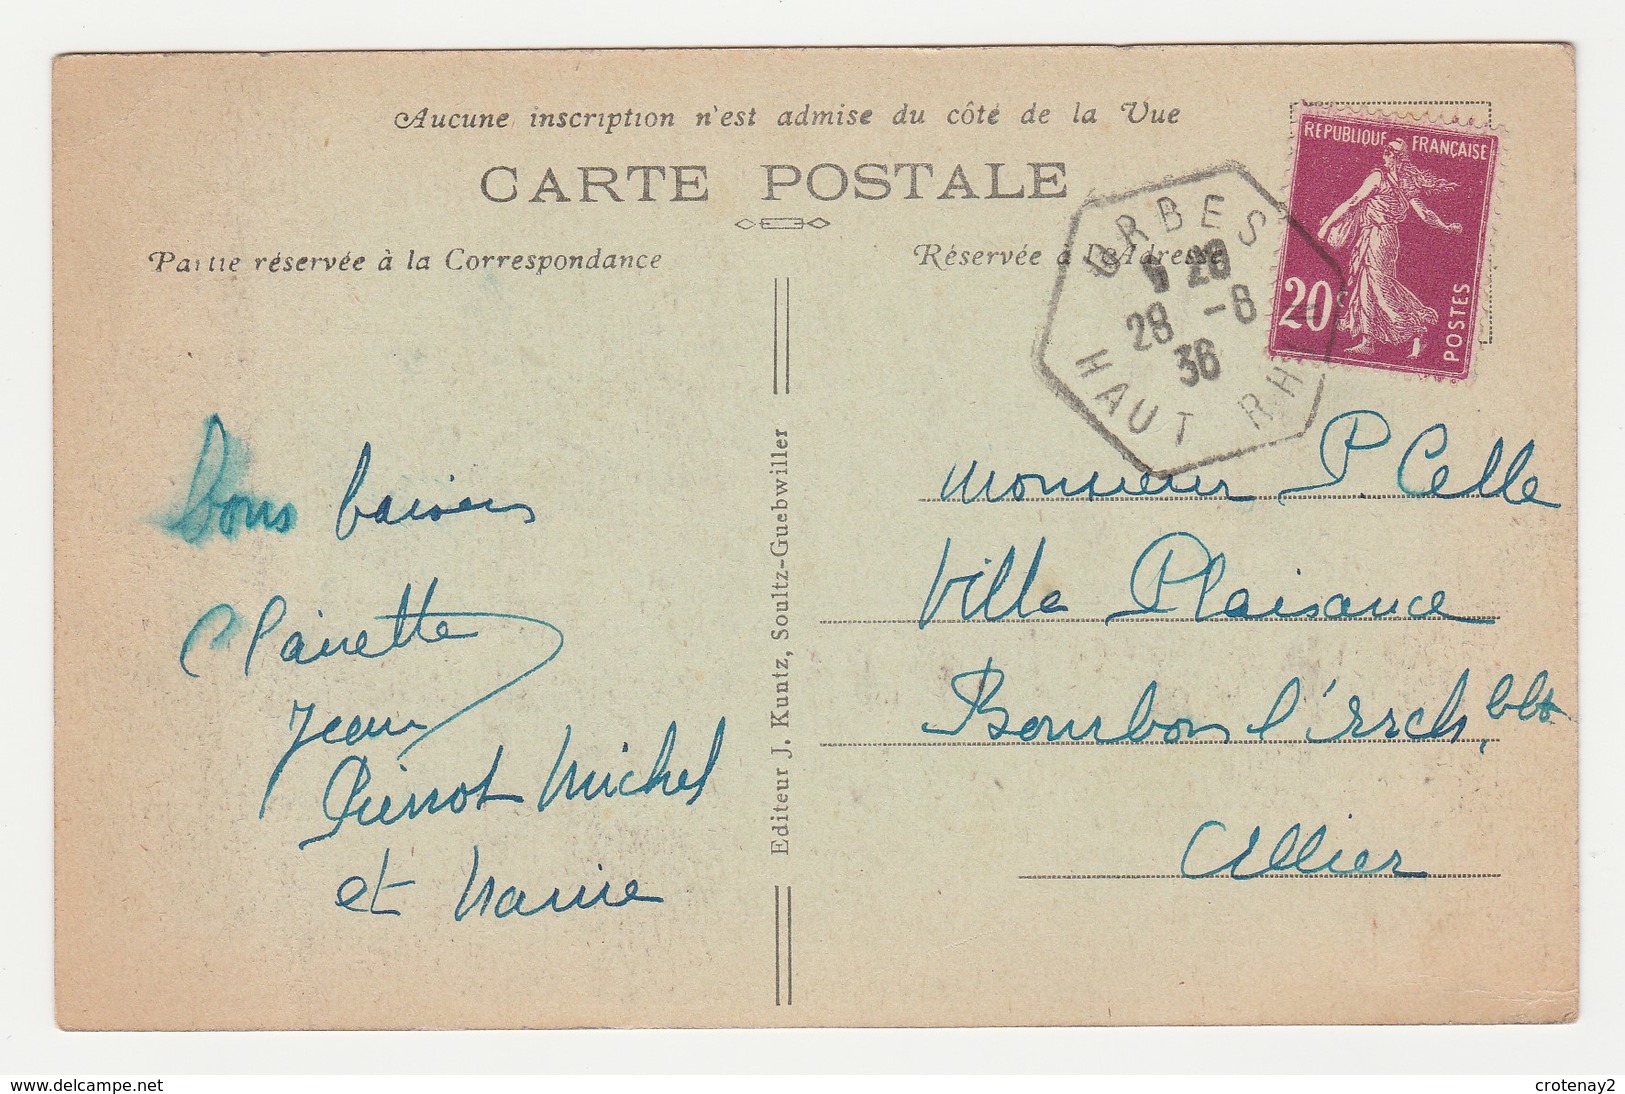 Aucune inscription n'est admise du côté de la Vue
CARTE POSTALE
Partie réservée à la Correspondance
Réservée à l'Adresse
URBES
28 -8
36
HAUT RHIN
REPUBLIQUE FRANÇAISE
20c
POSTES
bons baisers
Clairette
Jean
Pierrot Michel
et Mamie
Editeur J. Kuntz, Soultz-Guebwiller
Monsieur P. Celle
Villa Plaisance
Bourbon l'Arch.blt
Allier
www.delcampe.net
crotenay2